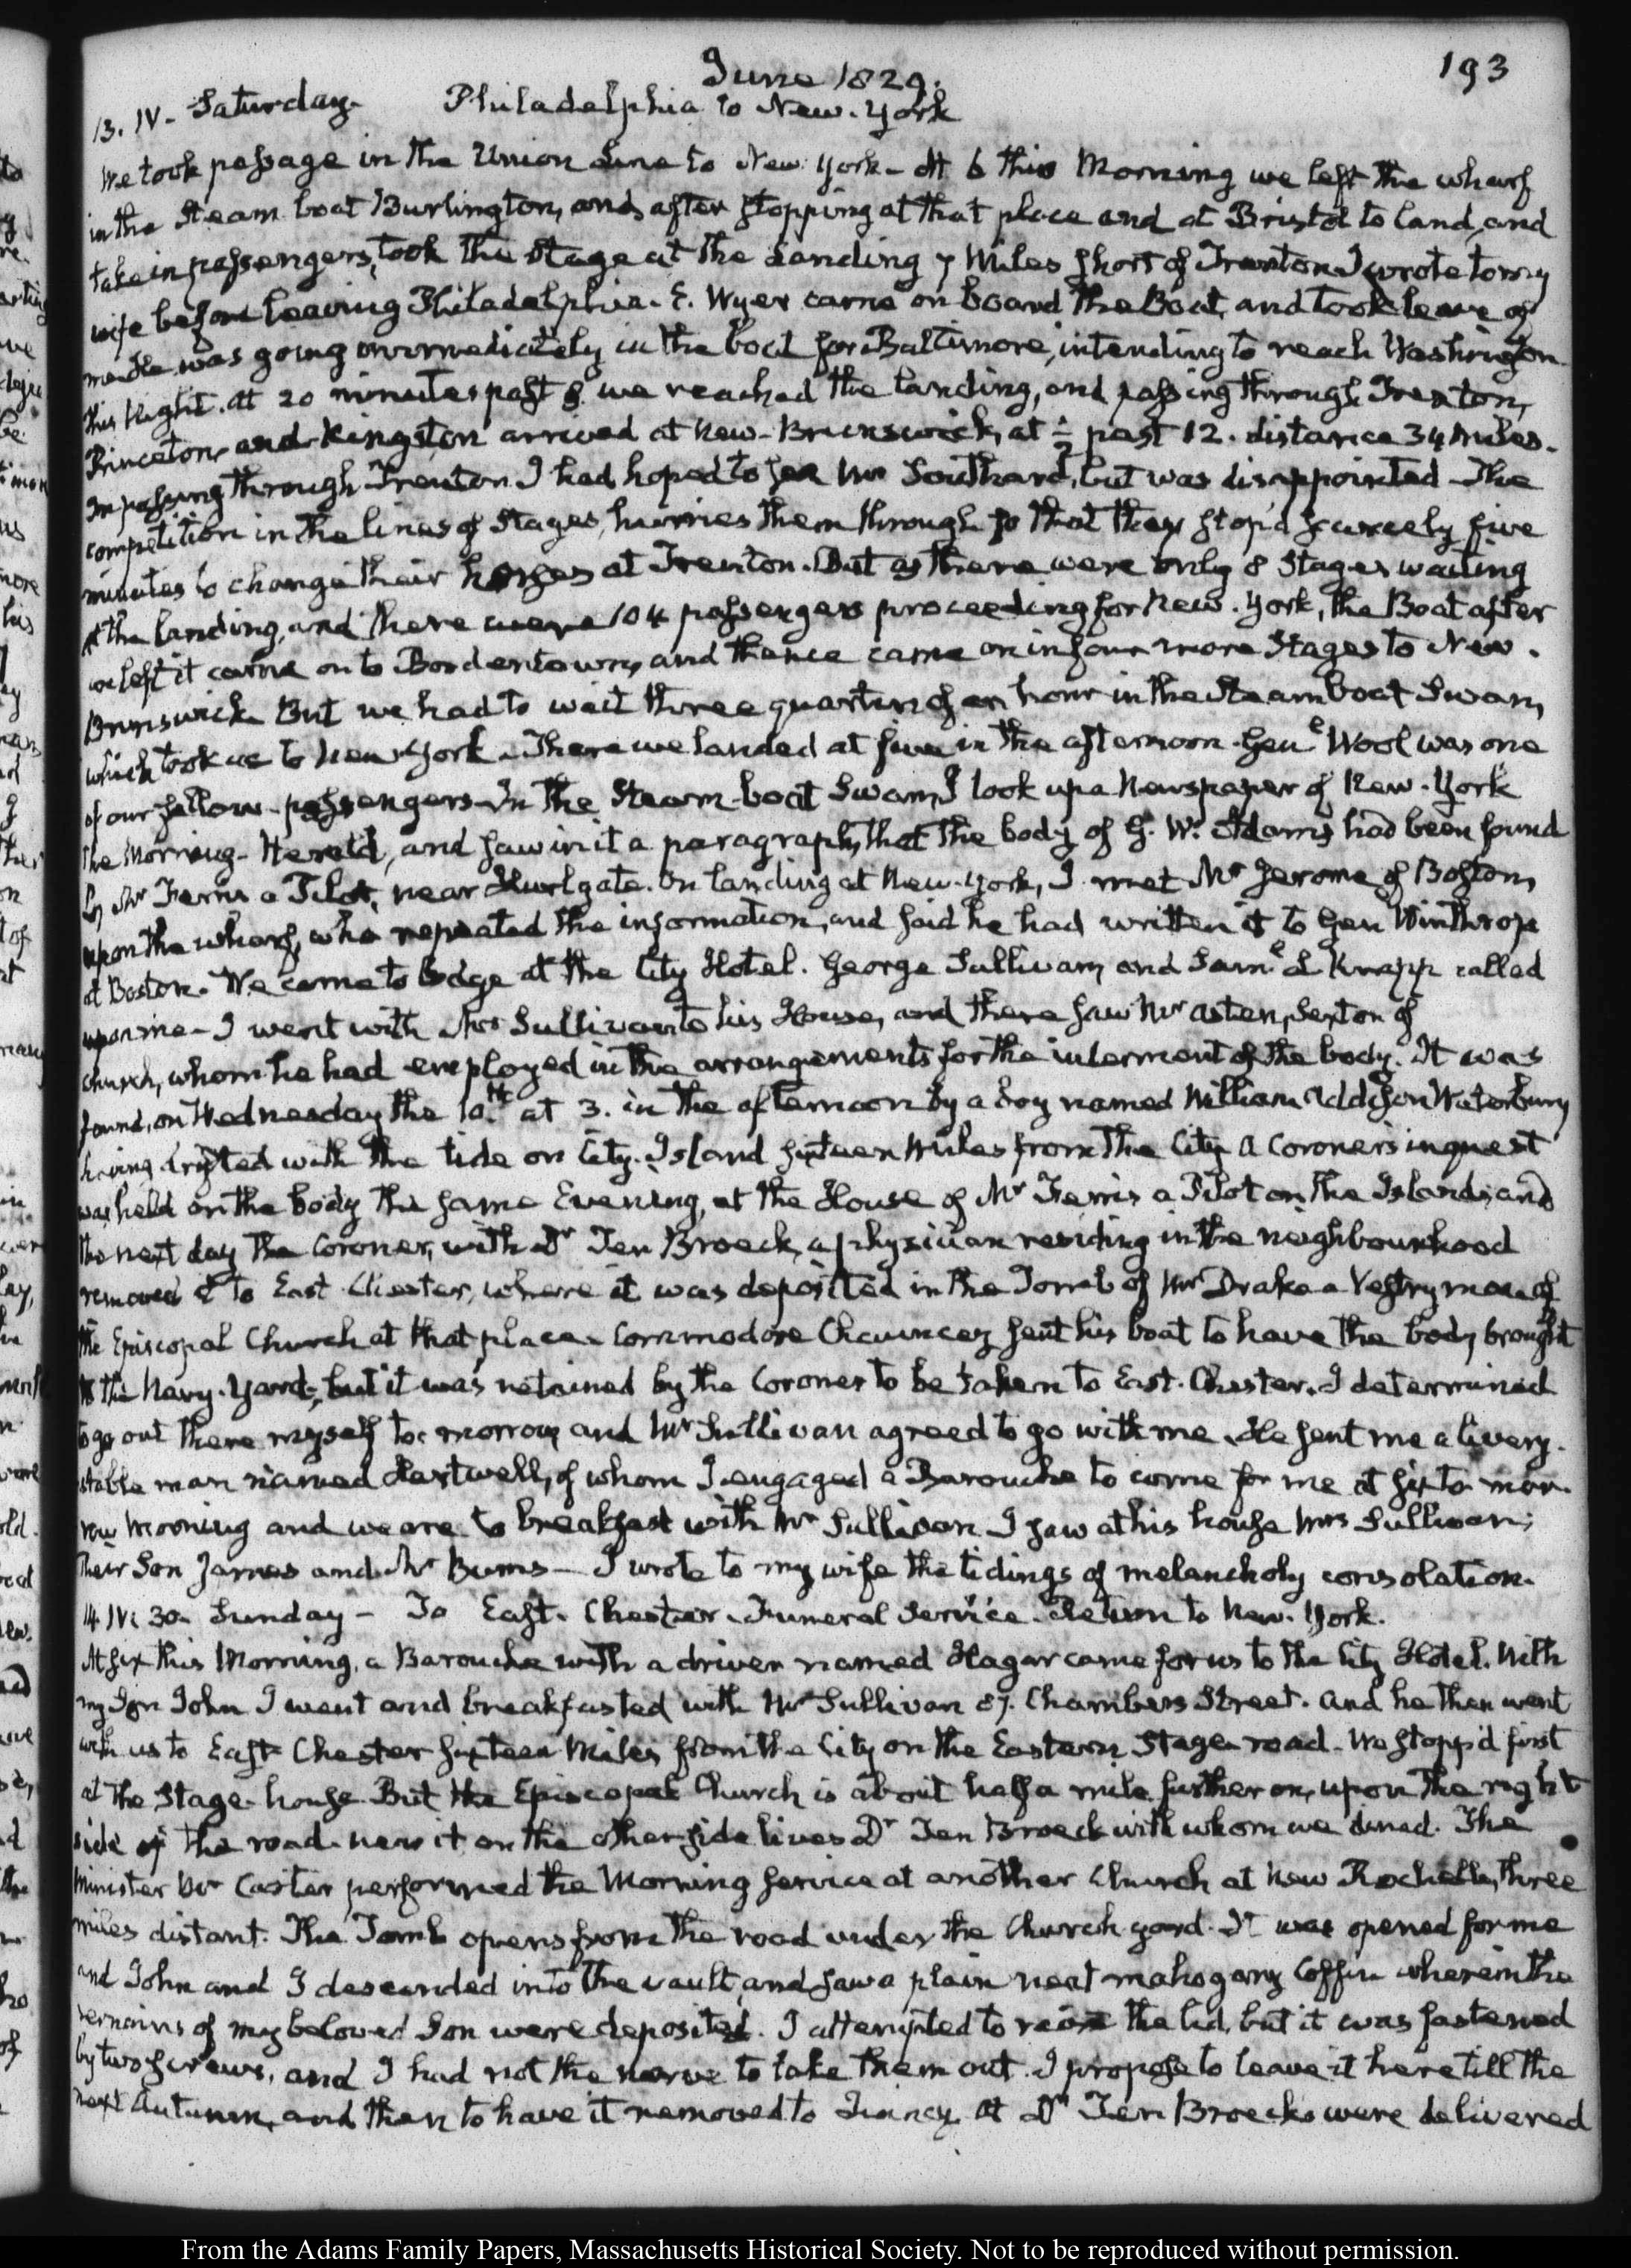 June 1829.
193
13. IV. Saturday. Philadelphia to New-York
We took passage in the Union Line to New York. At 6 this Morning we left the wharf
in the Steam boat Burlington, and after stopping at that place and at Bristol to land, and
take in passengers, took the Stage at the Landing 7 Miles short of Trenton. I wrote to my
wife before leaving Philadelphia. E. Wyer came on board the Boat, and took leave of
me. He was going immediately in the boat for Baltimore, intending to reach Washington
this Night. At 20 minutes past 8 we reached the landing, and passing through Trenton,
Princeton and Kingston arrived at New-Brunswick, at ½ past 12. distance 34 Miles.
In passing through Trenton I had hoped to see Mr Southard, but was disappointed. The
competition in the lines of Stages, hurries them through so that they stop'd scarcely five
minutes to change their horses at Trenton. But as there were only 8 Stages waiting
at the landing, and there were 104 passengers proceeding for New-York, the Boat after
we left it came on to Bordentown, and thence came on in four more Stages to New-
Brunswick. But we had to wait three quarters of an hour in the Steam boat Swan,
which took us to New York. There we landed at five in the afternoon. Genl Wool was one
of our fellow-passengers. In the Steam-boat Swan, I took up a Newspaper of New-York
the Morning-Herald, and saw in it a paragraph, that the body of G. W. Adams had been found
by Mr Ferris a Pilot, near Hurlgate. On landing at New-York, I met Mr Jerome of Boston,
upon the wharf, who repeated the information, and said he had written it to Gen Winthrop
at Boston. We came to lodge at the City Hotel. George Sullivan, and Saml L Knapp called
upon me. I went with Mr Sullivan to his House, and there saw Mr Asten, Sexton of
church, whom he had employed in the arrangements for the interment of the body. It was
found, on Wednesday the 10th at 3. in the afternoon by a boy named William Addison Waterbury
having drifted with the tide on City-Island sixteen Miles from the City. A Coroner's inquest
was held on the body the same Evening, at the House of Mr Ferris a Pilot on the Island; and
the next day the Coroner, with Dr Ten Broeck, a physician residing in the neighbourhood
removed it to East Chester, where it was deposited in the Tomb of Mr Drake a Vestryman of
the Episcopal Church at that place. Commodore Chauncey sent his boat to have the body brought
to the Navy-Yard; but it was retained by the Coroner to be taken to East-Chester. I determined
to go out there myself to-morrow and Mr Sullivan agreed to go with me. He sent me a livery-
stable man named Hartwell, of whom I engaged a Barouche to come for me at six to-mor-
row Morning and we are to breakfast with Mr Sullivan. I saw at his house Mrs Sullivan;
their Son James and Mr Burns — I wrote to my wife the tidings of melancholy consolation.
14. IV: 30. Sunday — To East-Chester. Funeral Service. Return to New-York.
At six this Morning, a Barouche with a driver named Hagar came for us to the City Hotel. With
my Son John I went and breakfasted with Mr Sullivan 87. Chambers Street. And he then went
with us to East Chester sixteen Miles from the City on the Eastern Stage road. We stopp'd first
at the Stage-house. But the Episcopal Church is about half a mile further on, upon the right
side of the road. near it on the other side lives Dr Ten Broeck with whom we dined. The
Minister Mr Carter performed the Morning service at another Church at New Rochelle, three
miles distant. The Tomb opens from the road under the Church yard. It was opened for me
and John and I descended into the vault, and saw a plain neat mahogany Coffin wherein the
remains of my beloved Son were deposited. I attempted to raise the lid, but it was fastened
by two screws, and I had not the nerve to take them out. I propose to leave it here till the
next Autumn, and then to have it removed to Quincy. At Dr Ten Broeck's were delivered
From the Adams Family Papers, Massachusetts Historical Society. Not to be reproduced without permission.